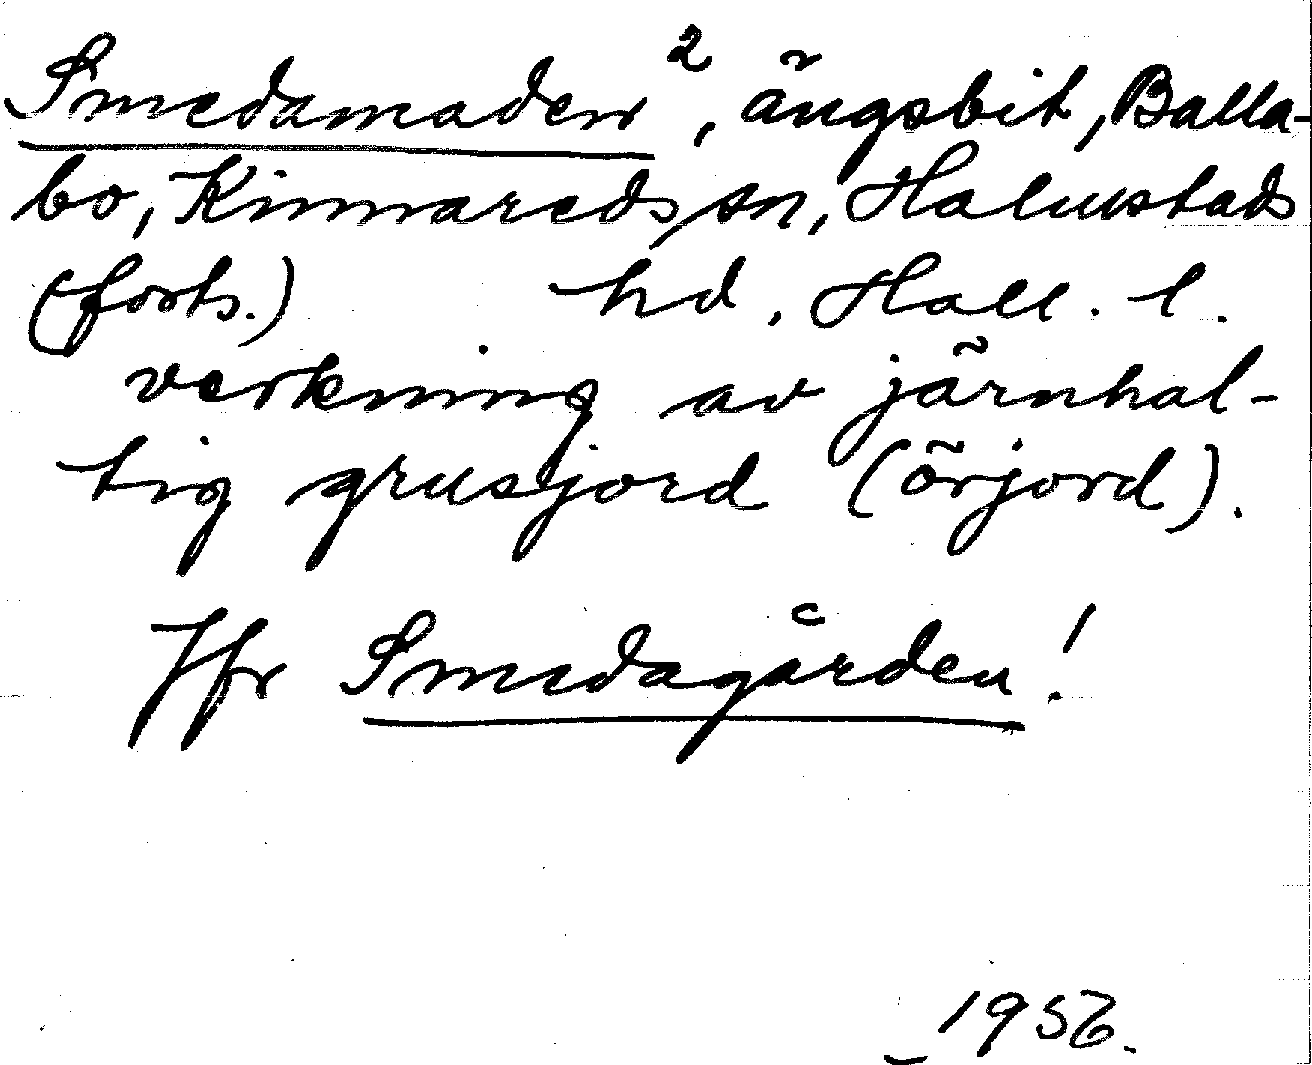 Smedamaden ², ängsbit, Balla-
bo, Kinnareds sn, Halmstads
(forts.) hd, Hall. l.
verkning av järnhal-
tig grusjord (örjord).
Jfr Smedagården!
1956.